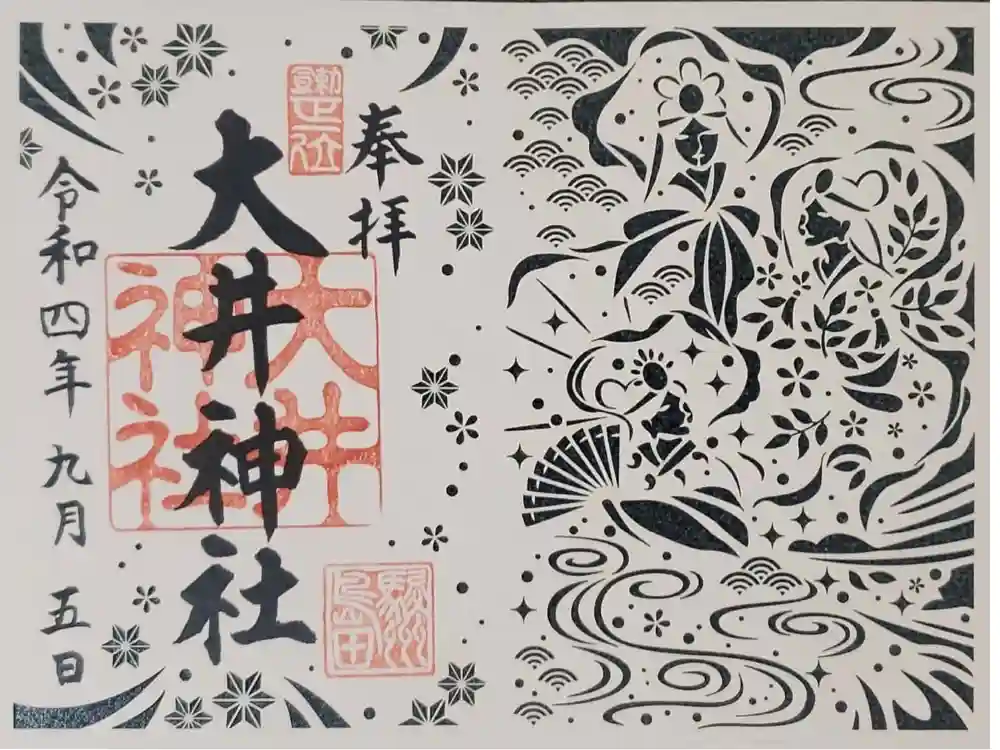 奉拝
勅宣正一位
大井神社
大井神社
駿州島田
令和四年九月五日